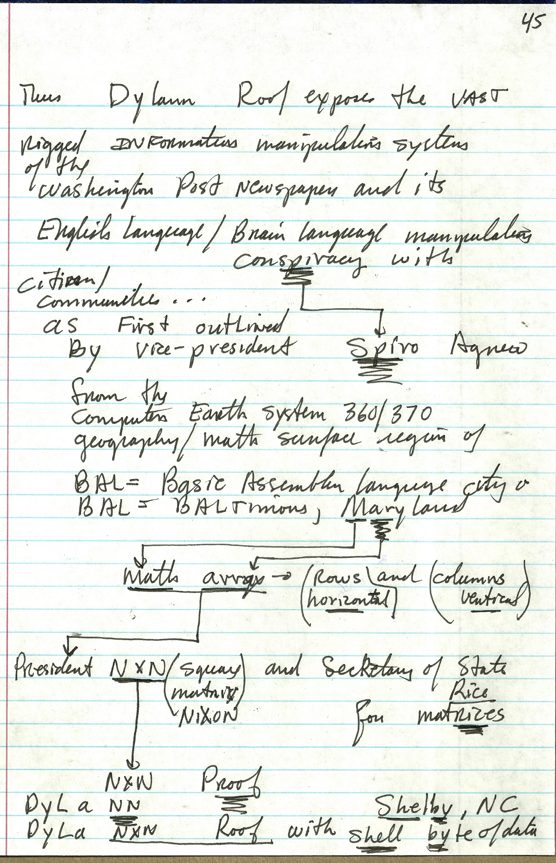 45
Thus Dylann Roof exposes the VAST
Rigged INFormation manipulation system
of the
Washington Post Newspaper and its
English language/Brain language manipulation
conspiracy with
citizen/
communities...
as First outlined
By vice-president Spiro Agnew
from the
Computer Earth System 360/370
geography/math surface region of
BAL = Basic Assembler language city of
BAL = BALTimore, Maryland
Math array → (Rows and (columns
horizontal) vertical)
President NXN (square and Secretary of State
matrix Rice
NiXON for matrices
NXN Proof
DyLa NN Shelby, NC
DyLa NXN Roof with shell byte of data